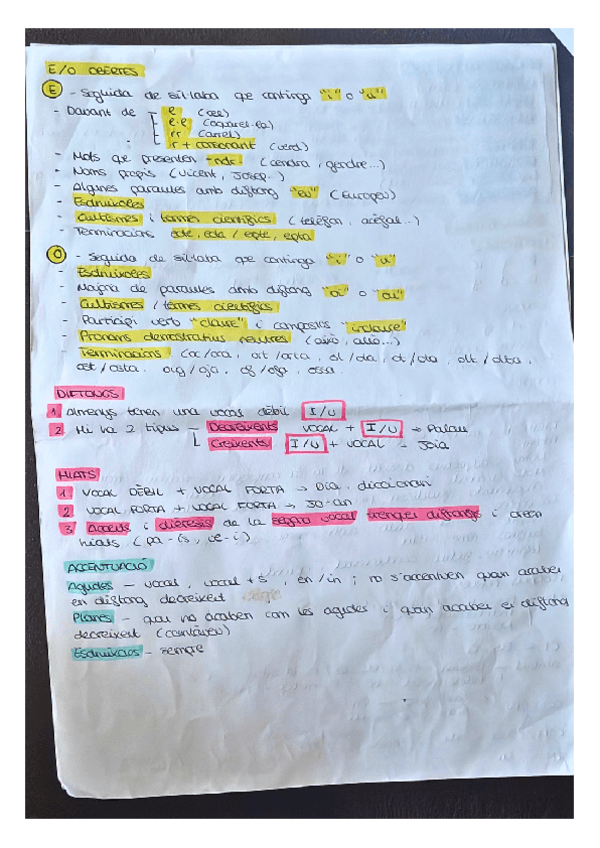 E/O OBERTES
E - Seguida de síl·laba que contingui "i" o "u"
- Davant de e (cee)
e·e (aquarel·la)
rr (arrel)
r + consonant (verd)
- Mots que presenten -ndr- (cendra, gendre...)
- Noms propis (Vicent, Josep..)
- Algunes paraules amb diftong "eu" (Europeu)
- Esdrúixoles
- Cultismes i termes científics (telèfon, acèfal..)
- Terminacions ecte, ecta / epte, epta
O - Seguida de síl·laba que contingui "i" o "u"
- Esdrúixoles
- Majoria de paraules amb diftong "oi" o "ou"
- Cultismes / termes científics
- Participi verb "cloure" i compostos "incloure"
- Pronoms demostratius neutres (això, allò...)
- Terminacions (oc/oca, ort/orta, ol/ola, ot/ota, olt/olta,
ost/osta, oig/oja, of/ofa, ossa
DIFTONGS
1 almenys tenen una vocal dèbil I/U
2 Hi ha 2 tipus - Decreixents VOCAL + I/U → Palau
Creixents I/U + VOCAL - Joia
HIATS
1 VOCAL DÈBIL + VOCAL FORTA → Dia, diccionari
2 VOCAL FORTA + VOCAL FORTA → Jo-an
3 Accents i dièresis de la segona vocal trenquen diftongs i creen
hiats (pa-ís, ve-í)
ACCENTUACIÓ
Agudes - vocal, vocal + s, en/in; no s'accentuen quan acaben
en diftong decreixent
Planes - quan no acaben com les agudes i quan acaben en diftong
decreixent (cantàveu)
Esdrúixoles - sempre